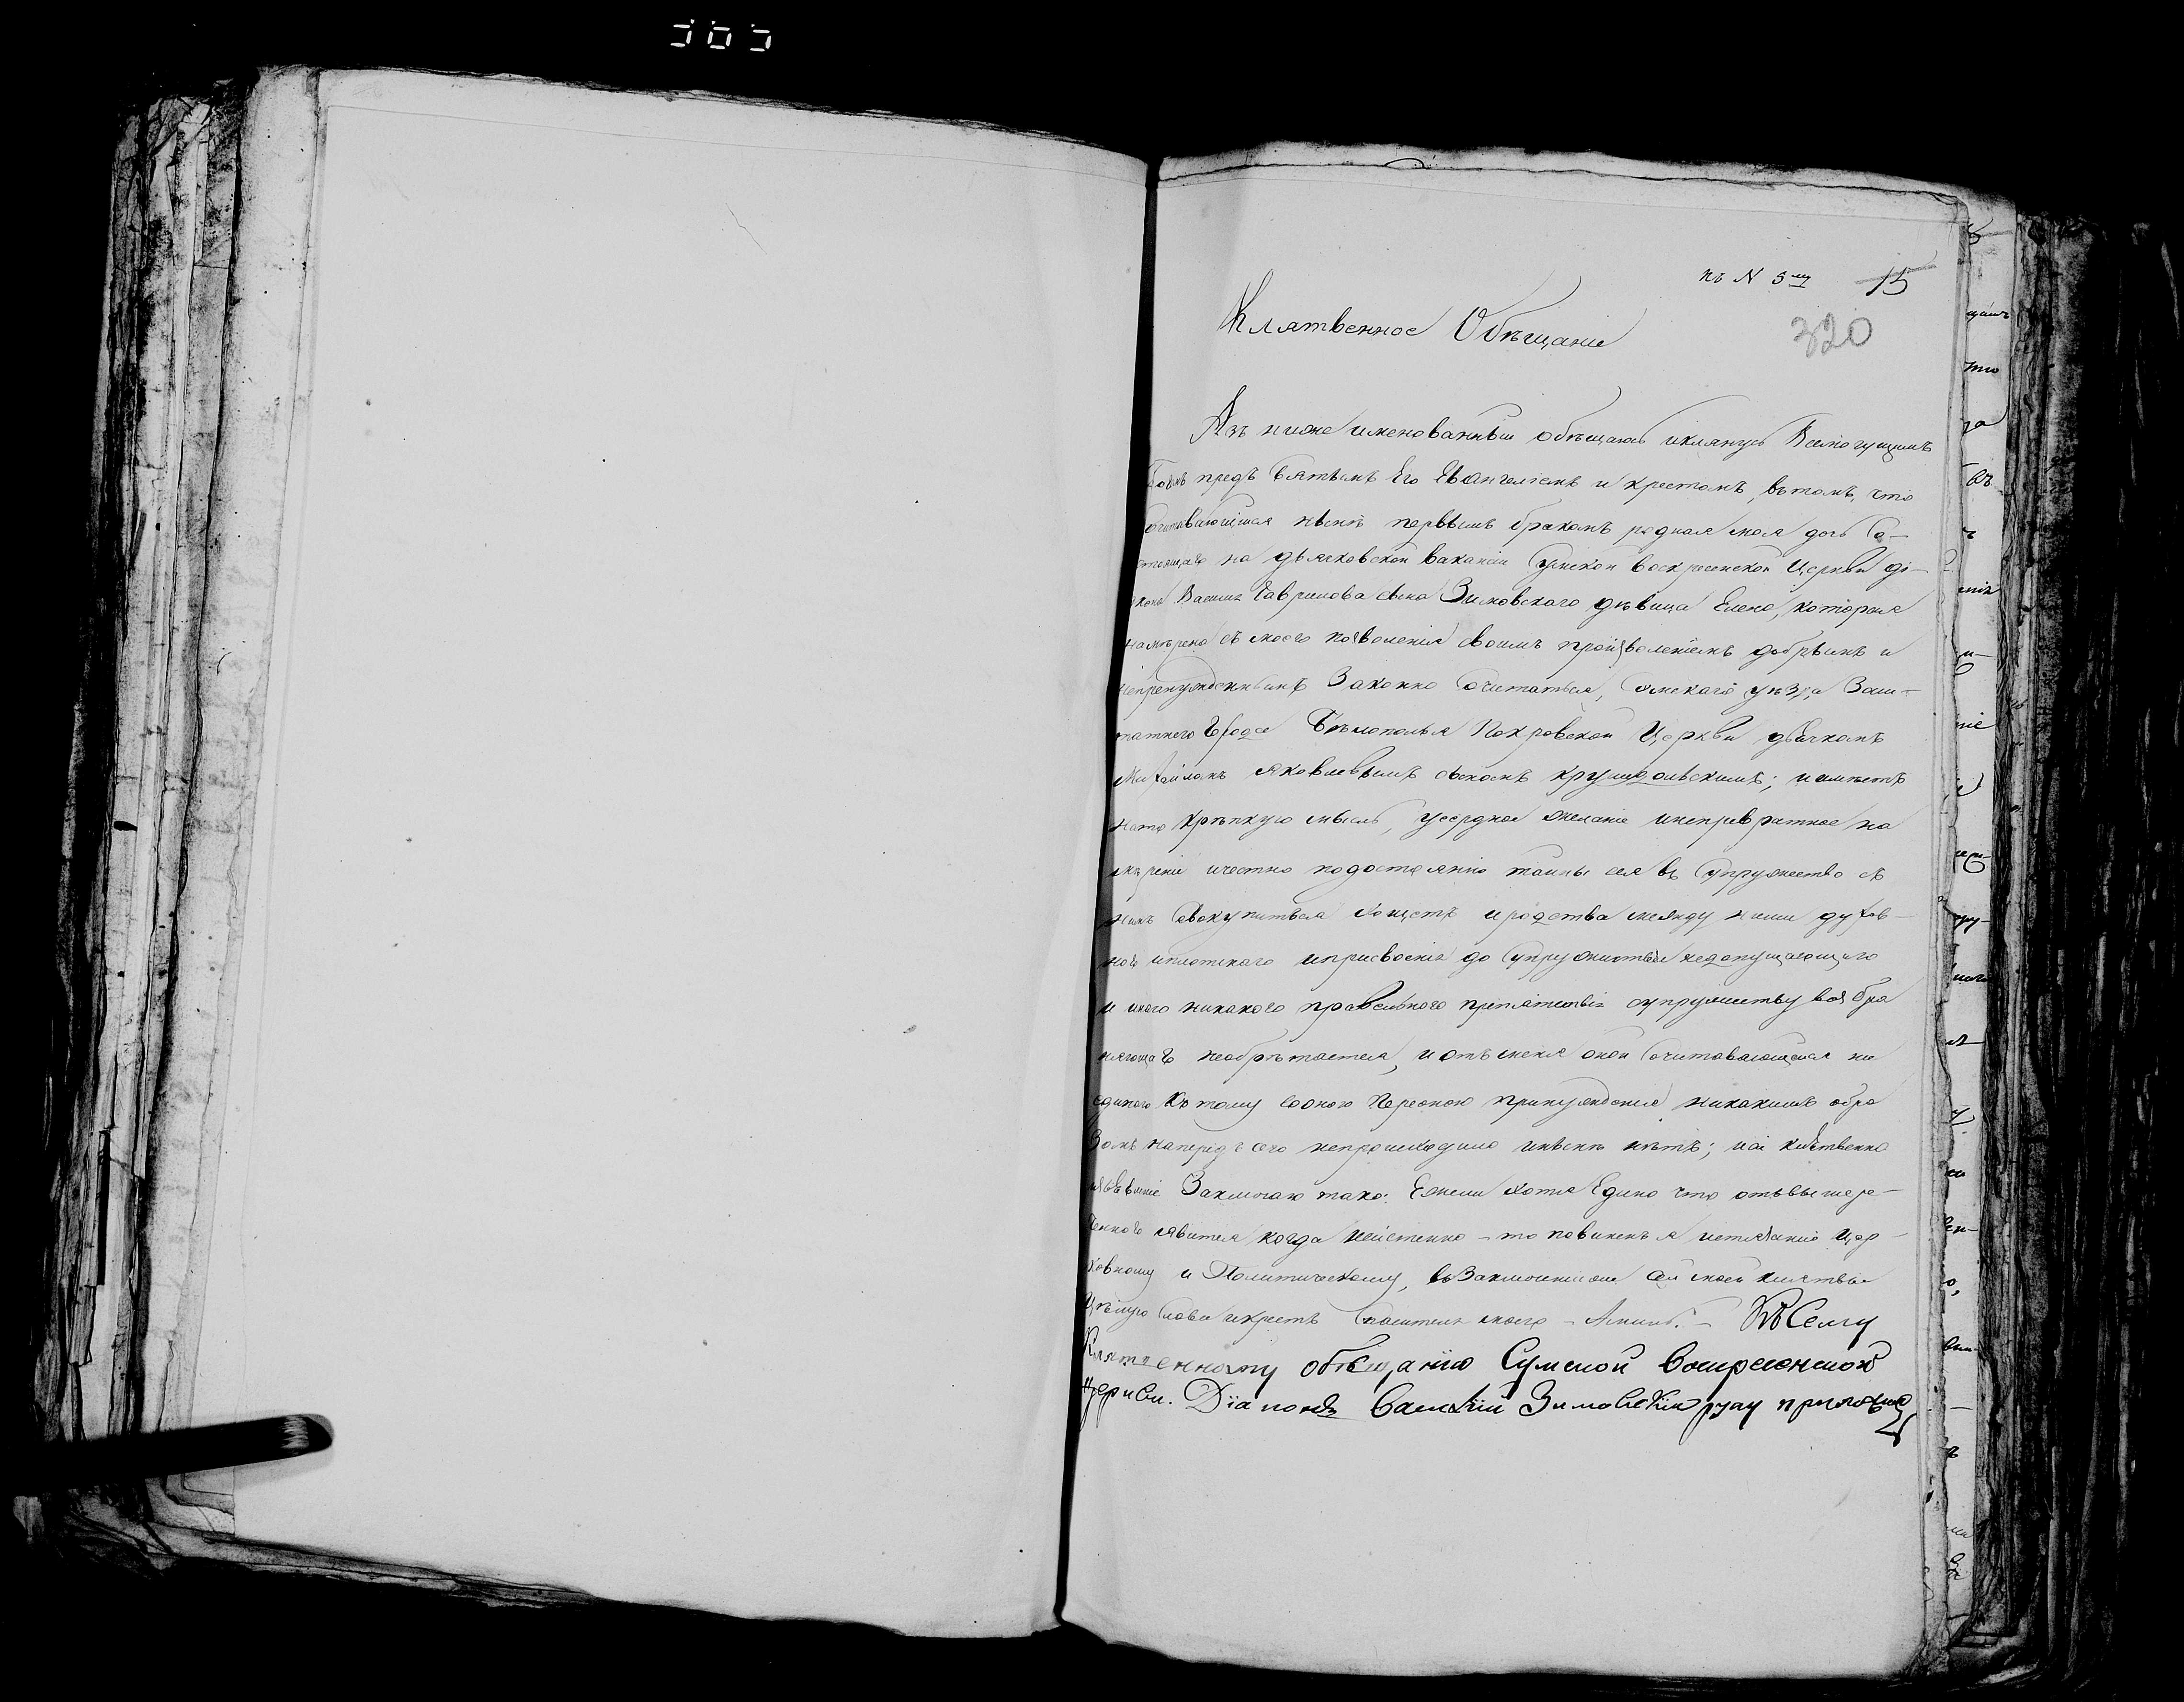 къ N 5му 15
320
Клятвенное Обѣщаніе
Азъ ниже именованный обѣщаюсь и клянусь Всемогущимъ
Богомъ предъ Святымъ Его Евангеліемъ и крестомъ, въ томъ, что
сочитавающаяся нынѣ первымъ бракомъ родная моя дочь Со-
стоящаго на дьячковской вакансіи Сумской Воскресенской Церкви ді-
акона Василія Гаврилова сына Зимовскаго дѣвица Елена, которая
намѣрена съ моего позволенія своимъ произволеніемъ добрымъ и
непринужденнымъ Законно Сочитаться, Сумскаго уѣзда Заш-
татнего Города Бѣлополья Покровской Церкви дьячкомъ
Михайломъ Яковлевымъ сыномъ; и имѣетъ
на то крѣпкую мысль, усердное желаніе и непревратное на
мѣреніе и честно по достоянію тайны сея въ Супружество съ
нимъ Совокупиться хощетъ и родства между ними духов-
наго и плотскаго и присвоенія до Супружества недопущающаго
и инаго никакого правильного препятствія супружеству возбра
няющаго необрѣтается, и отъ меня оной Сочитавающейся ни
единого къ тому Собною Персоною принужденія никакимъ обра
зомъ напередъ сего непроисходило и нынѣ нѣтъ; и сіе клятвенно
изъявленіе Заключаю тако: Ежели хотя Едино что отъ вышере-
ченного явится когда неистенно - то повиненъ я истязанію Цер-
ковному и Политическому, въ Заключеніи же сей моей клятвы
Цѣлую Слова и крестъ Спасителя моего - Аминь. - КЪ Сему
Клятвенному обѣщанію Сумской Воскресенской
Церкви. Діаконъ Василій Зимовскій руку приложилъ